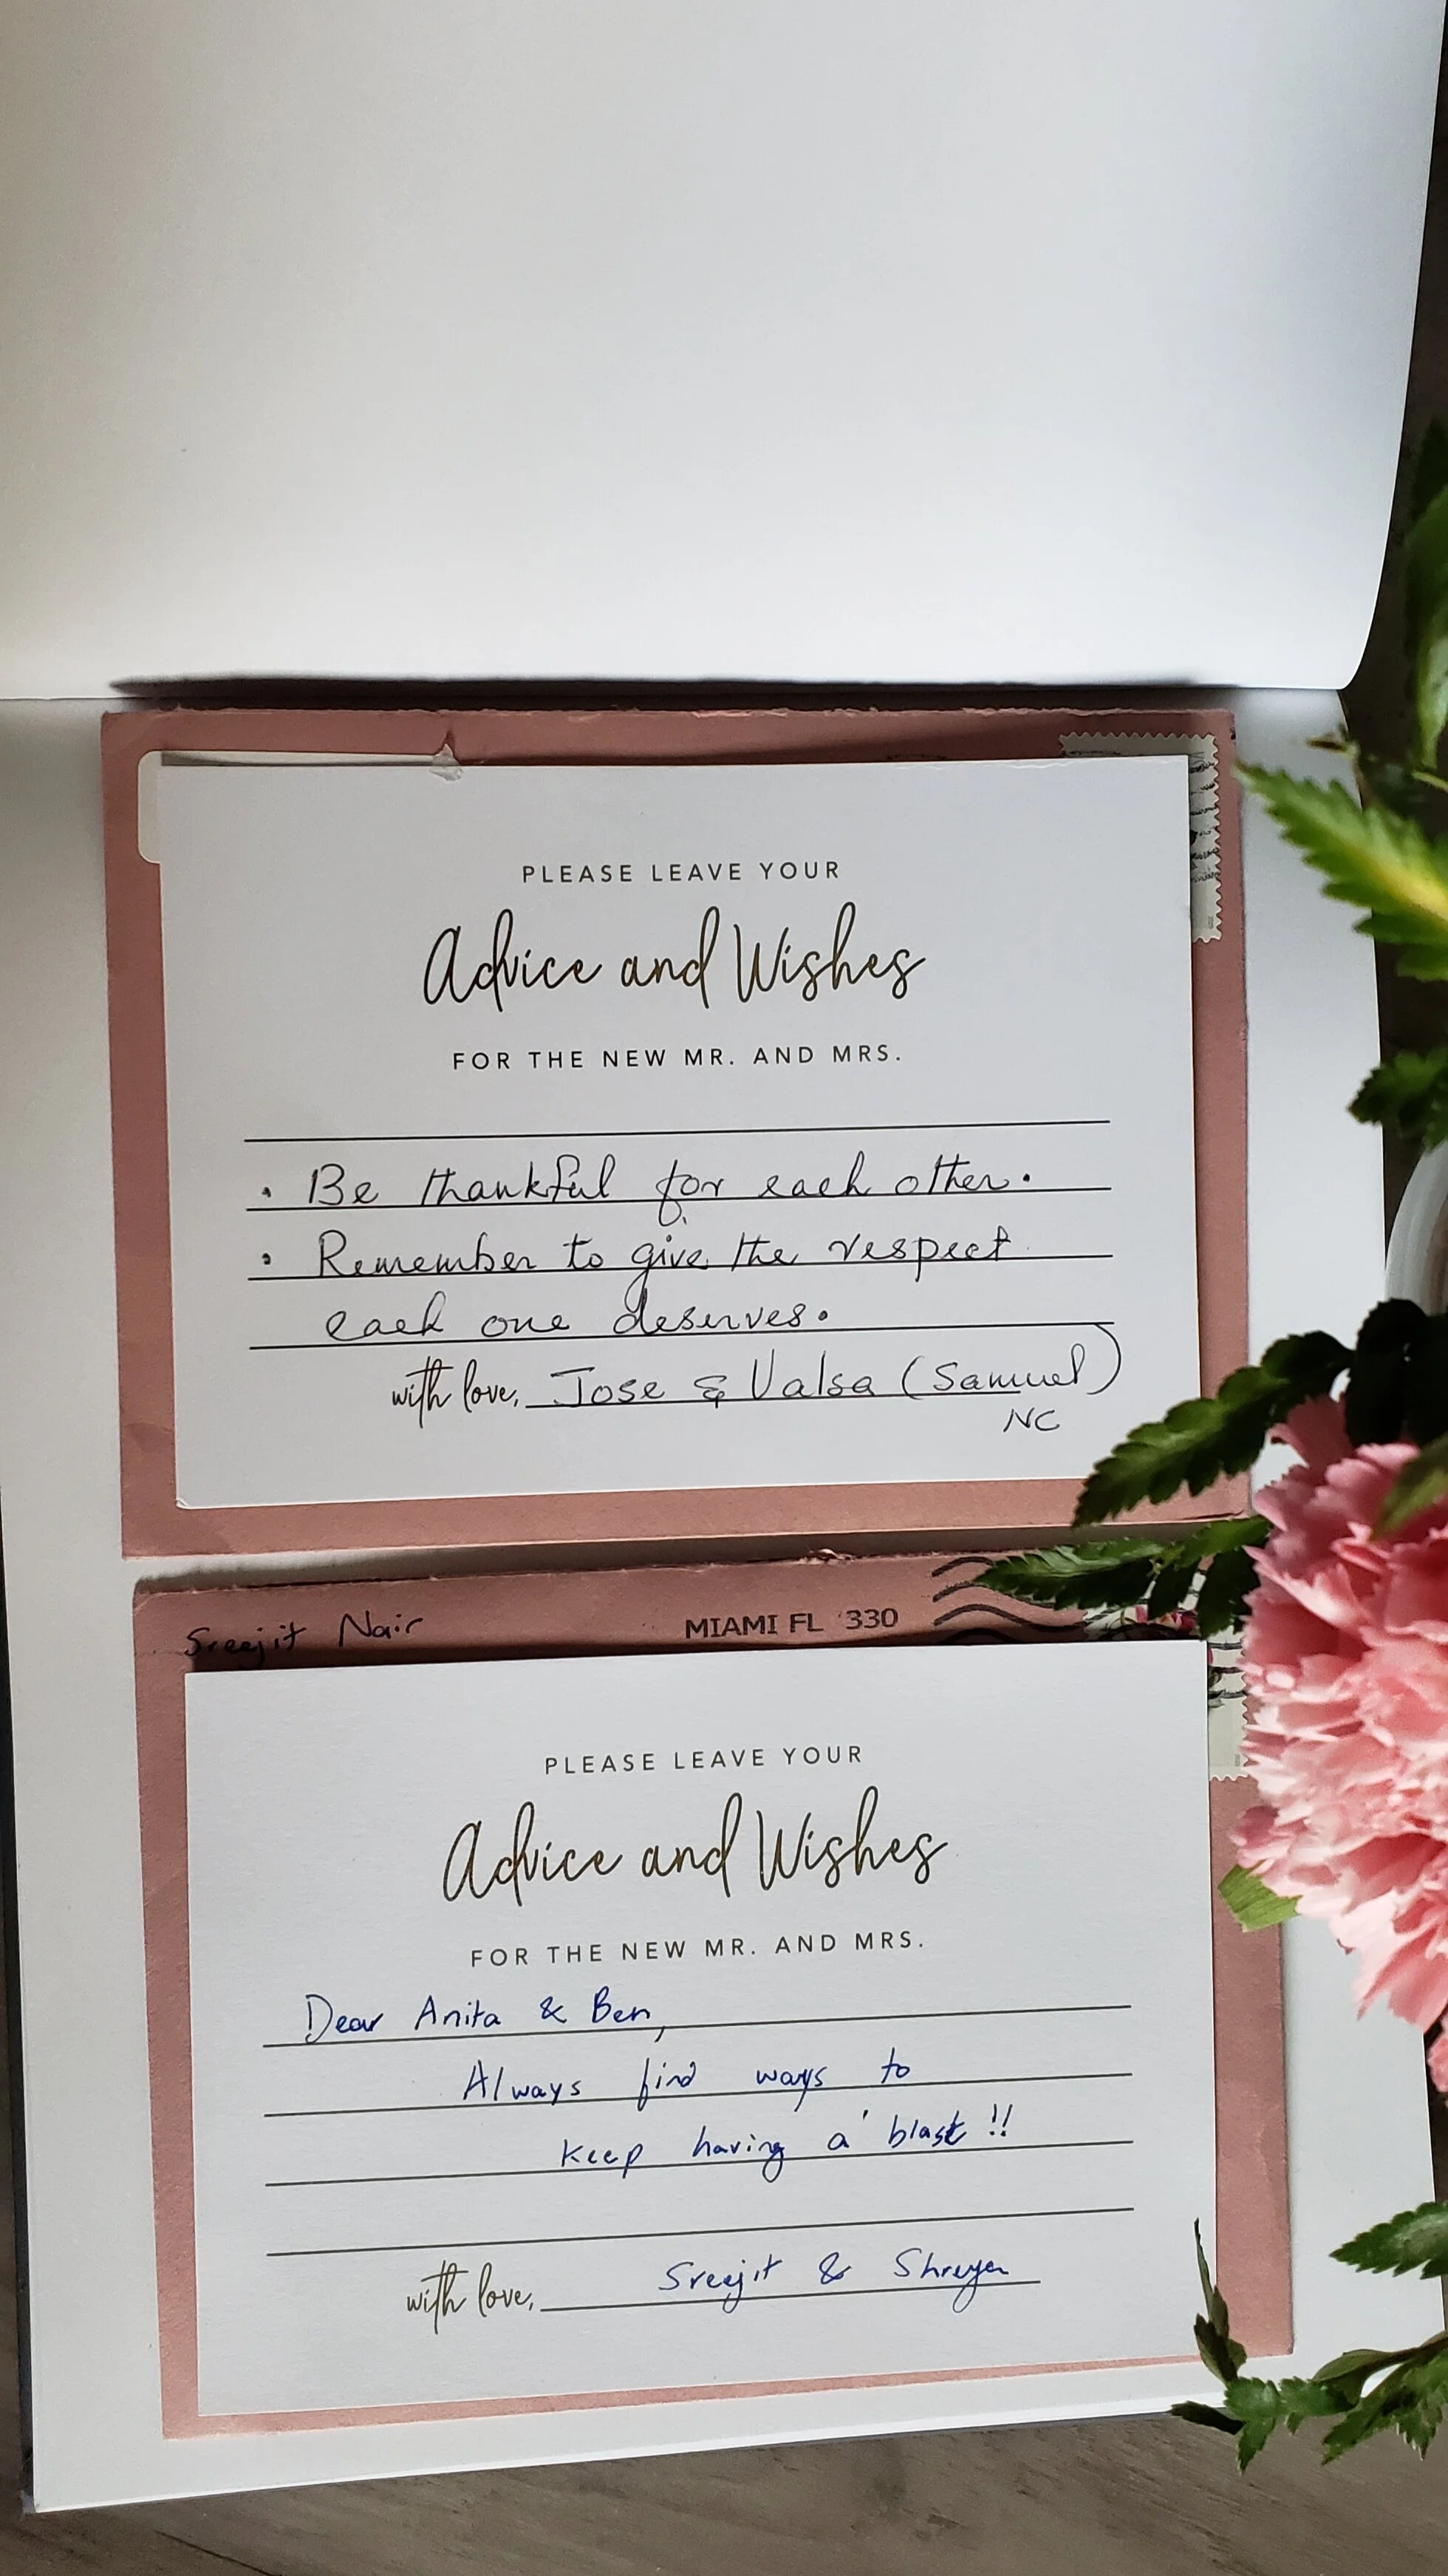 PLEASE LEAVE YOUR
Advice and Wishes
FOR THE NEW MR. AND MRS.
• Be thankful for each other.
• Remember to give the respect
each one deserves.
with love, Jose & Valsa (Samuel)
NC
Sreejit Nair
MIAMI FL 330
PLEASE LEAVE YOUR
Advice and Wishes
FOR THE NEW MR. AND MRS.
Dear Anita & Ben,
Always find ways to
keep having a blast!!
with love, Sreejit & Shreya